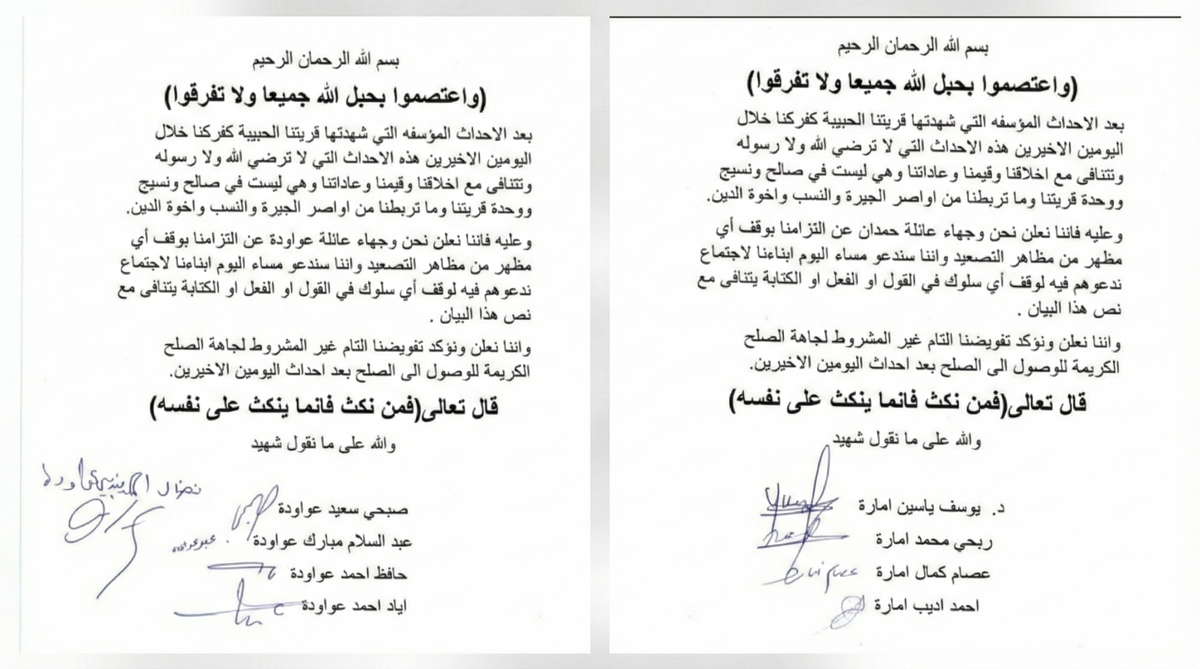 بسم الله الرحمان الرحيم
(واعتصموا بحبل الله جميعا ولا تفرقوا)
بعد الاحداث المؤسفه التي شهدتها قريتنا الحبيبة كفركنا خلال
اليومين الاخيرين هذه الاحداث التي لا ترضي الله ولا رسوله
وتتنافى مع اخلاقنا وقيمنا وعاداتنا وهي ليست في صالح ونسيج
ووحدة قريتنا وما تربطنا من اواصر الجيرة والنسب واخوة الدين.
وعليه فاننا نعلن نحن وجهاء عائلة حمدان عن التزامنا بوقف أي
مظهر من مظاهر التصعيد واننا سندعو مساء اليوم ابناءنا لاجتماع
ندعوهم فيه لوقف أي سلوك في القول او الفعل او الكتابة يتنافى مع
نص هذا البيان .
واننا نعلن ونؤكد تفويضنا التام غير المشروط لجاهة الصلح
الكريمة للوصول الى الصلح بعد احداث اليومين الاخيرين.
قال تعالى(فمن نكث فانما ينكث على نفسه)
والله على ما نقول شهيد
د. يوسف ياسين امارة
ربحي محمد امارة
عصام كمال امارة
احمد اديب امارة
بسم الله الرحمان الرحيم
(واعتصموا بحبل الله جميعا ولا تفرقوا)
بعد الاحداث المؤسفه التي شهدتها قريتنا الحبيبة كفركنا خلال
اليومين الاخيرين هذه الاحداث التي لا ترضي الله ولا رسوله
وتتنافى مع اخلاقنا وقيمنا وعاداتنا وهي ليست في صالح ونسيج
ووحدة قريتنا وما تربطنا من اواصر الجيرة والنسب واخوة الدين.
وعليه فاننا نعلن نحن وجهاء عائلة عواودة عن التزامنا بوقف أي
مظهر من مظاهر التصعيد واننا سندعو مساء اليوم ابناءنا لاجتماع
ندعوهم فيه لوقف أي سلوك في القول او الفعل او الكتابة يتنافى مع
نص هذا البيان .
واننا نعلن ونؤكد تفويضنا التام غير المشروط لجاهة الصلح
الكريمة للوصول الى الصلح بعد احداث اليومين الاخيرين.
قال تعالى(فمن نكث فانما ينكث على نفسه)
والله على ما نقول شهيد
نضال عواودة
صبحي سعيد عواودة
عبد السلام مبارك عواودة
حافظ احمد عواودة
اياد احمد عواودة